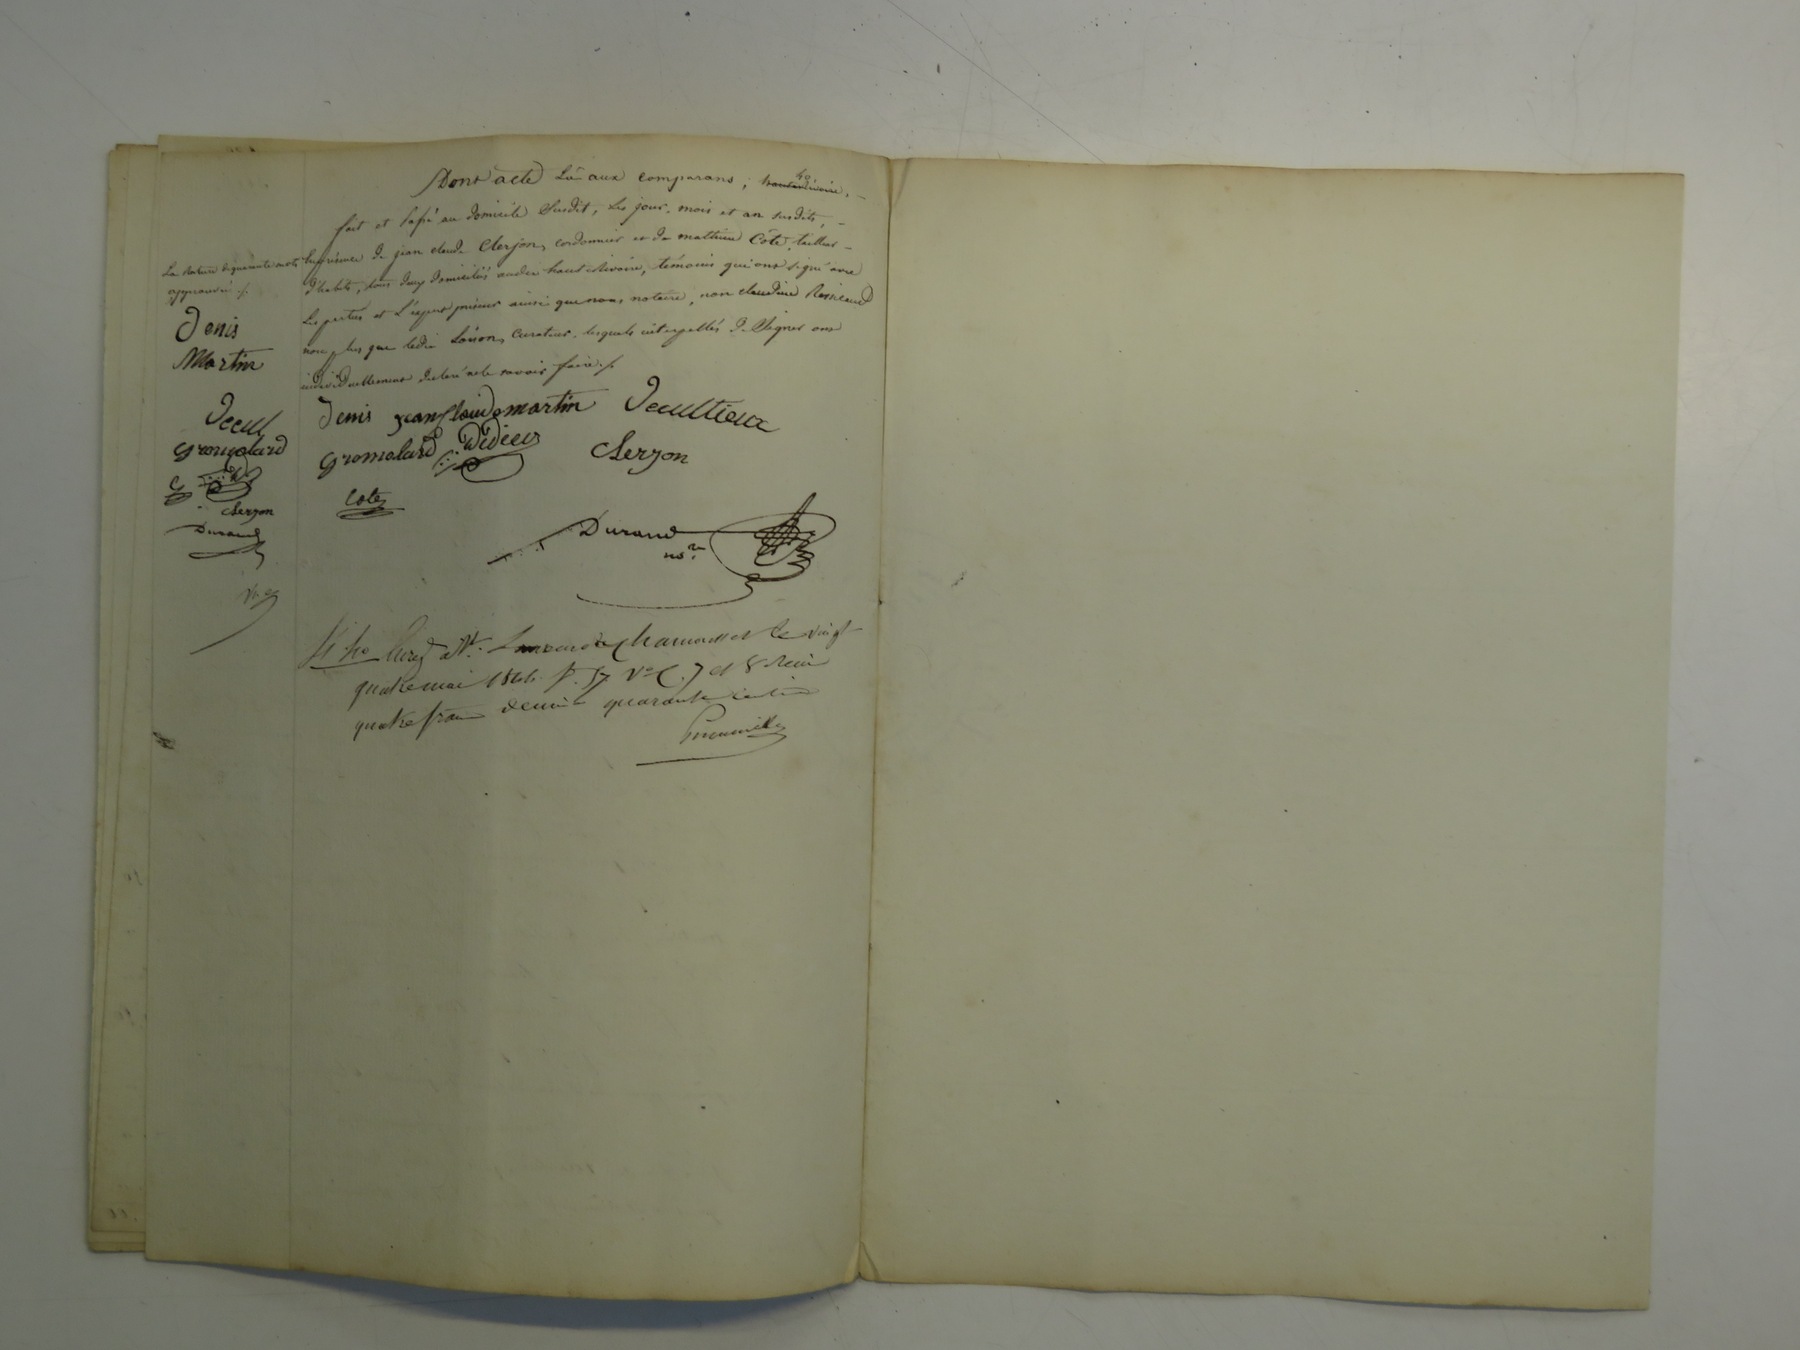 Dont acte lu aux comparans ;
fait et passé au domicile susdit, les jour, mois et an susdits, –
En présence de jean claude Clerjon, cordonnier et de mathieu Côte, tailleur –
d'habits, tous deux domiciliés audit haut Rivoire, témoins qui ont signé avec
Les parties et L'expert priseur ainsi que nous notaire, non claudine
non plus que ledit curateur, lesquels interpellés de Signer ont
individuellement déclaré ne le savoir faire ./.
La rature de quarante mots
approuvée ./.
Denis
Martin
Decul
gromolard
Clerjon
Durand
Denis jean Claude martin Decultieux
gromolard Dédieu Clerjon
Cote
Durand
no.re
St. Laurent de Chamousset le vingt
quatre mai f. 57 v° C. 7 et 8 Reçu
quatre francs décime quarante centimes